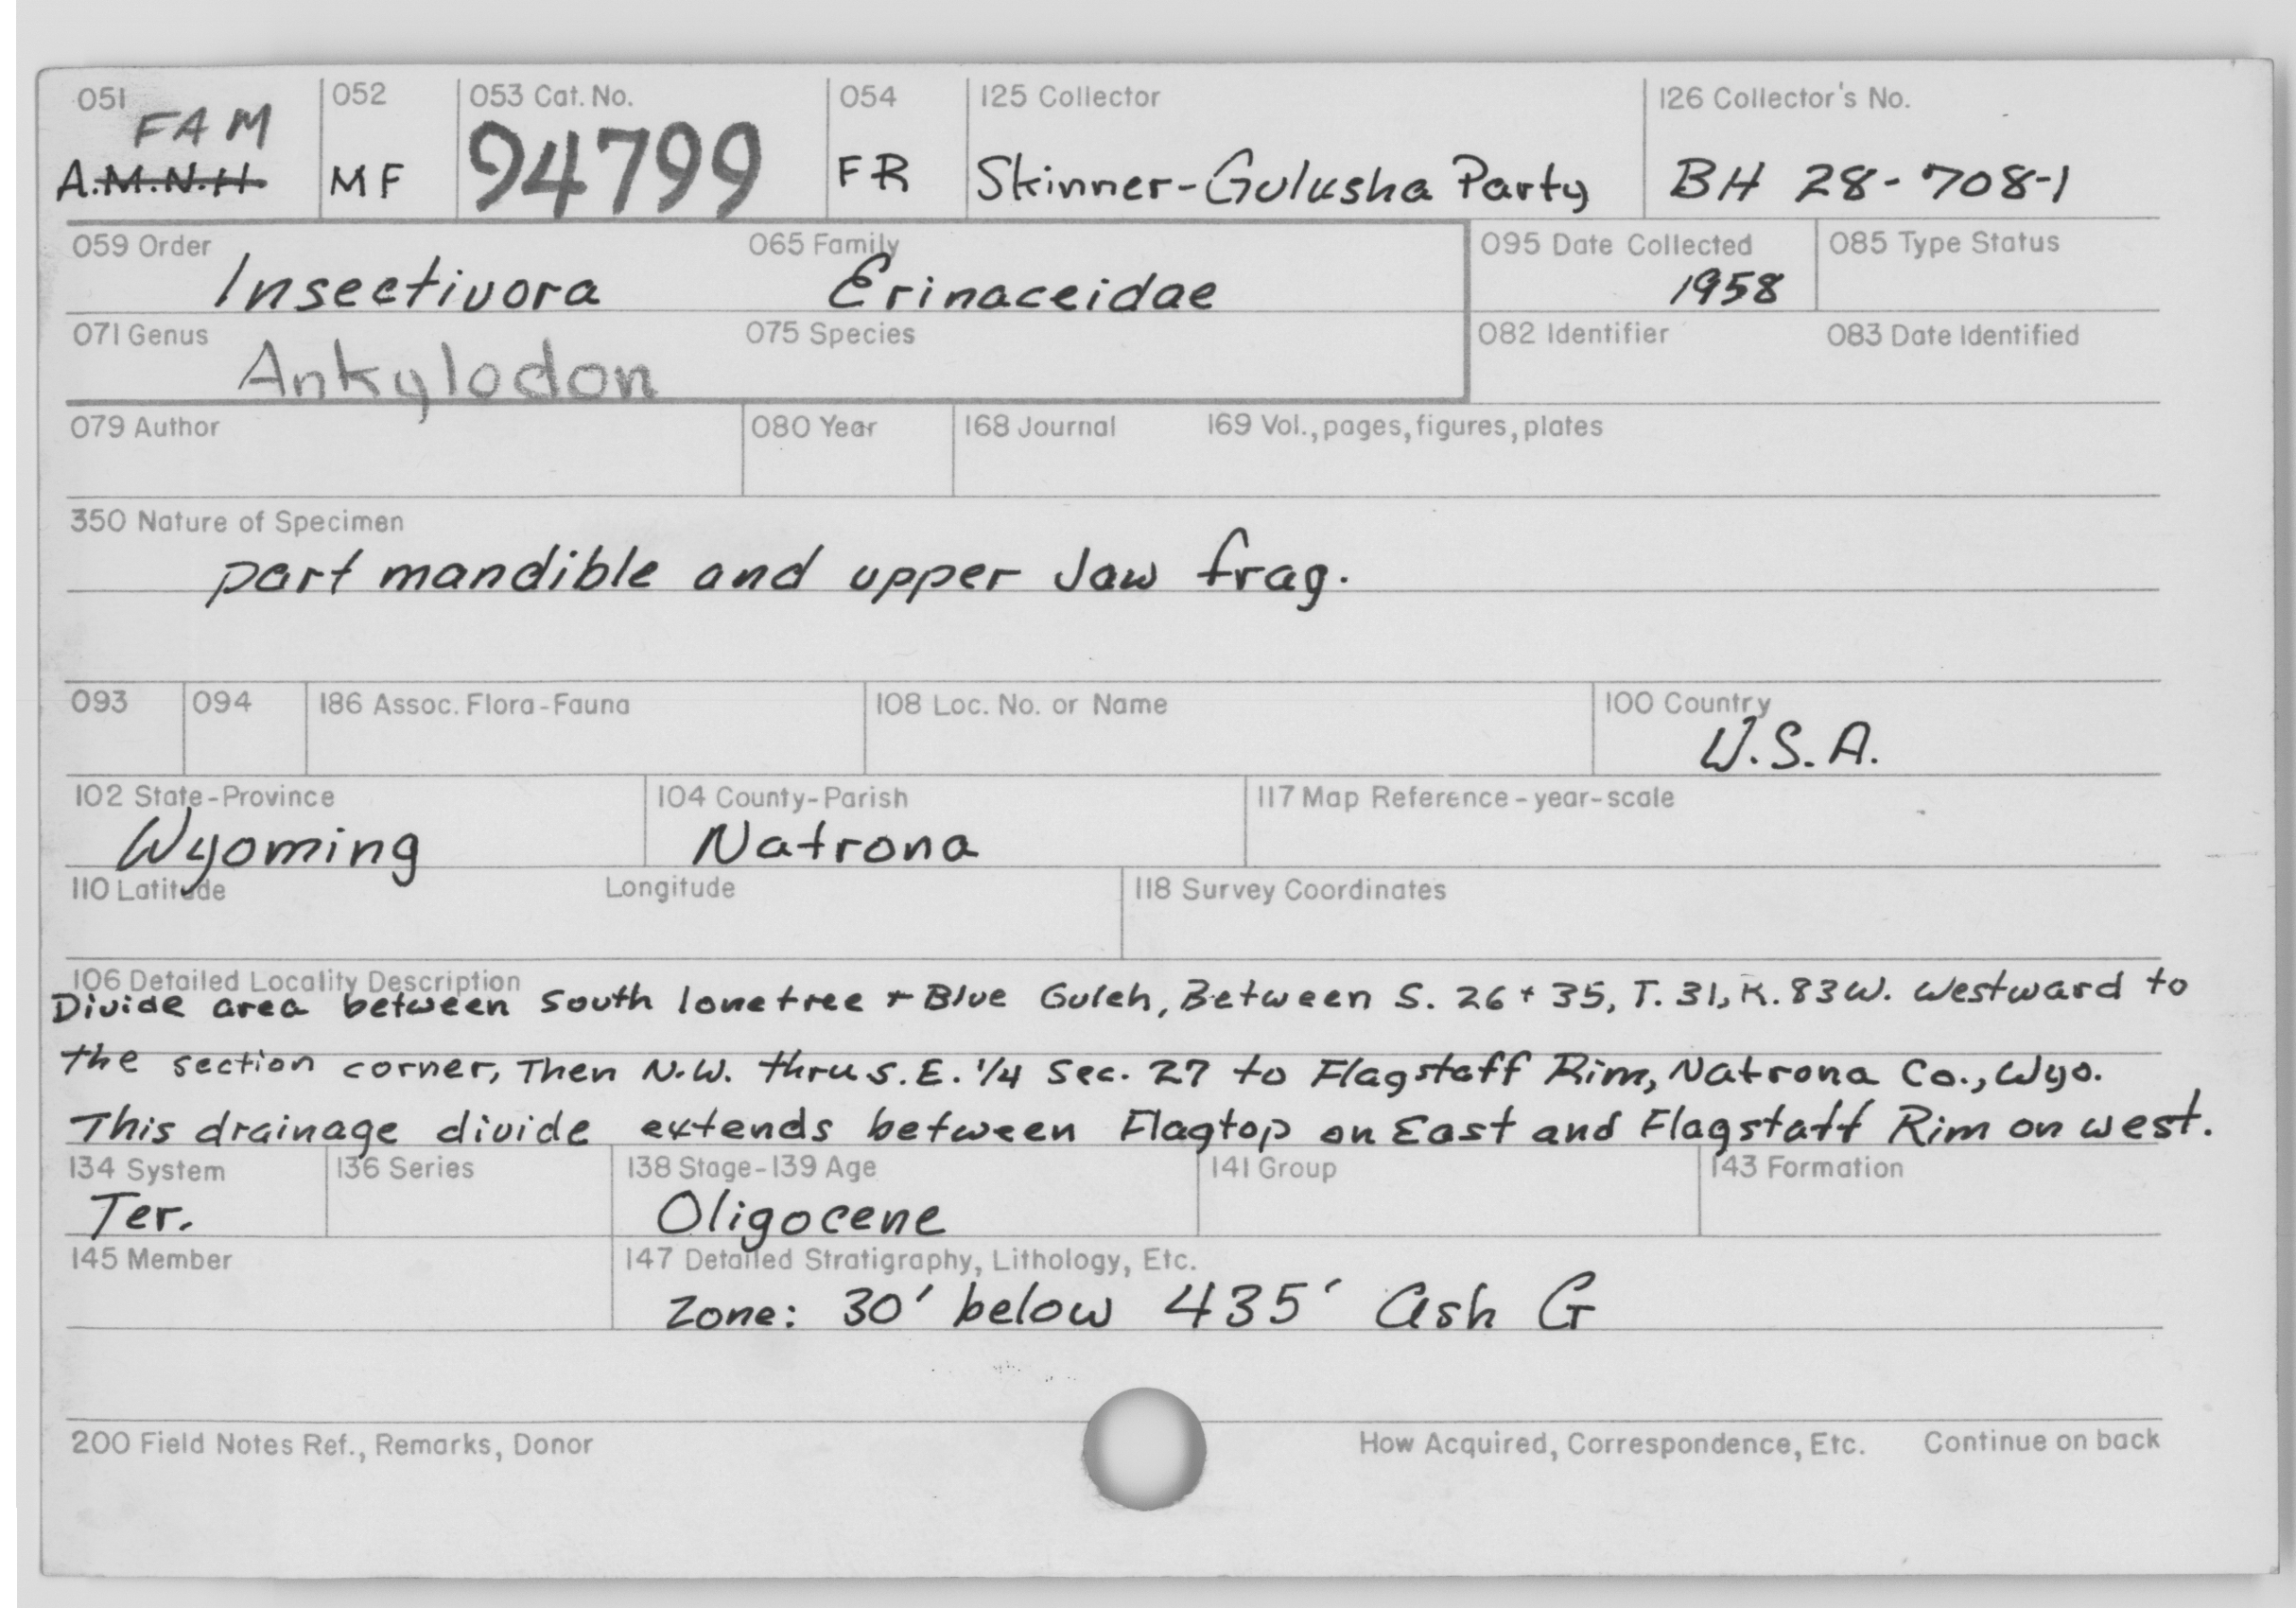 051 052 053 Cat. No. 054 125 Collector 126 Collector's No.
FAM
A.M.N.H. MF 94799 FR Skinner-Gulusha Party BH 28-708-1
059 Order 065 Family 095 Date Collected 085 Type Status
Insectivora Erinaceidae 1958
071 Genus 075 Species 082 Identifier 083 Date Identified
Ankylodon
079 Author 080 Year 168 Journal 169 Vol., pages, figures, plates
350 Nature of Specimen
part mandible and upper Jaw frag.
093 094 186 Assoc. Flora-Fauna 108 Loc. No. or Name 100 Country
U.S.A.
102 State-Province 104 County-Parish 117 Map Reference-year-scale
Wyoming Natrona
110 Latitude Longitude 118 Survey Coordinates
106 Detailed Locality Description
Divide area between South lonetree + Blue Gulch, Between S. 26 + 35, T. 31, R. 83W. Westward to
the section corner, Then N.W. thru S.E. 1/4 Sec. 27 to Flagstaff Rim, Natrona Co., Wyo.
This drainage divide extends between Flagtop on East and Flagstaff Rim on west.
134 System 136 Series 138 Stage-139 Age 141 Group 143 Formation
Ter. Oligocene
145 Member 147 Detailed Stratigraphy, Lithology, Etc.
Zone: 30' below 435' Ash G
200 Field Notes Ref., Remarks, Donor How Acquired, Correspondence, Etc. Continue on back